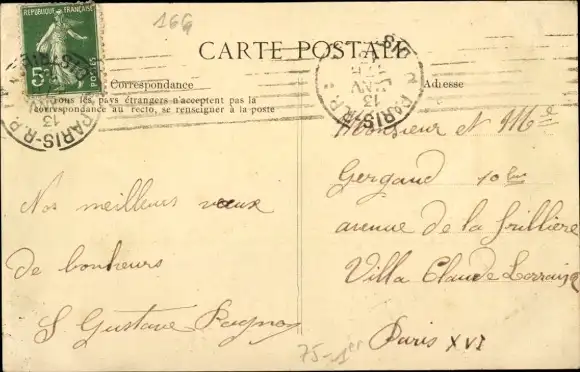 166
REPUBLIQUE FRANÇAISE
5c
POSTES
CARTE POSTALE
Correspondance
Tous les pays étrangers n'acceptent pas la
correspondance au recto, se renseigner à la poste
Adresse
PARIS-R.P.
13
Nos meilleurs vœux
de bonheurs
S Gustave
Monsieur et Mme
Gergaud 10 bis
avenue de la frillière
Villa Claude Lorrain
Paris XVI
75-1er